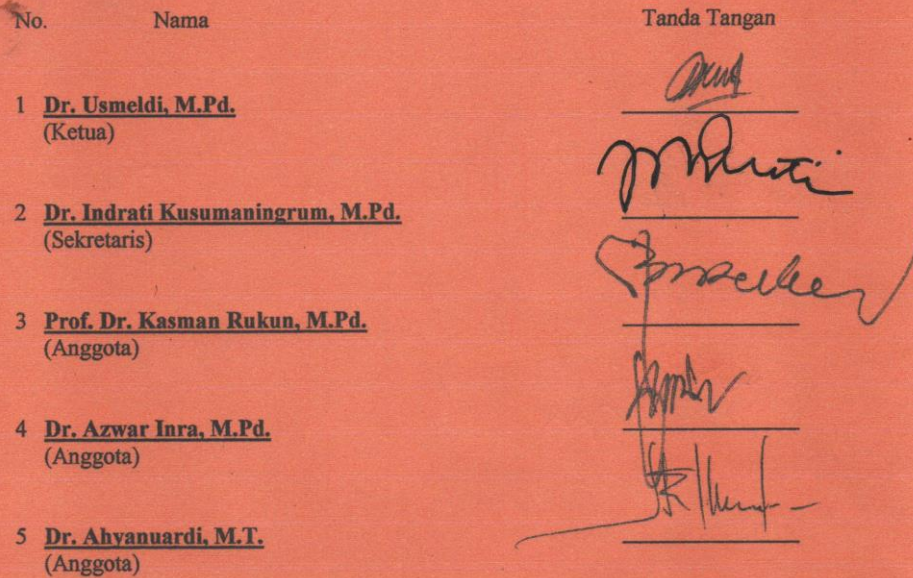 No. Nama Tanda Tangan
1 Dr. Usmeldi, M.Pd.
(Ketua)
2 Dr. Indrati Kusumaningrum, M.Pd.
(Sekretaris)
3 Prof. Dr. Kasman Rukun, M.Pd.
(Anggota)
4 Dr. Azwar Inra, M.Pd.
(Anggota)
5 Dr. Ahyanuardi, M.T.
(Anggota)